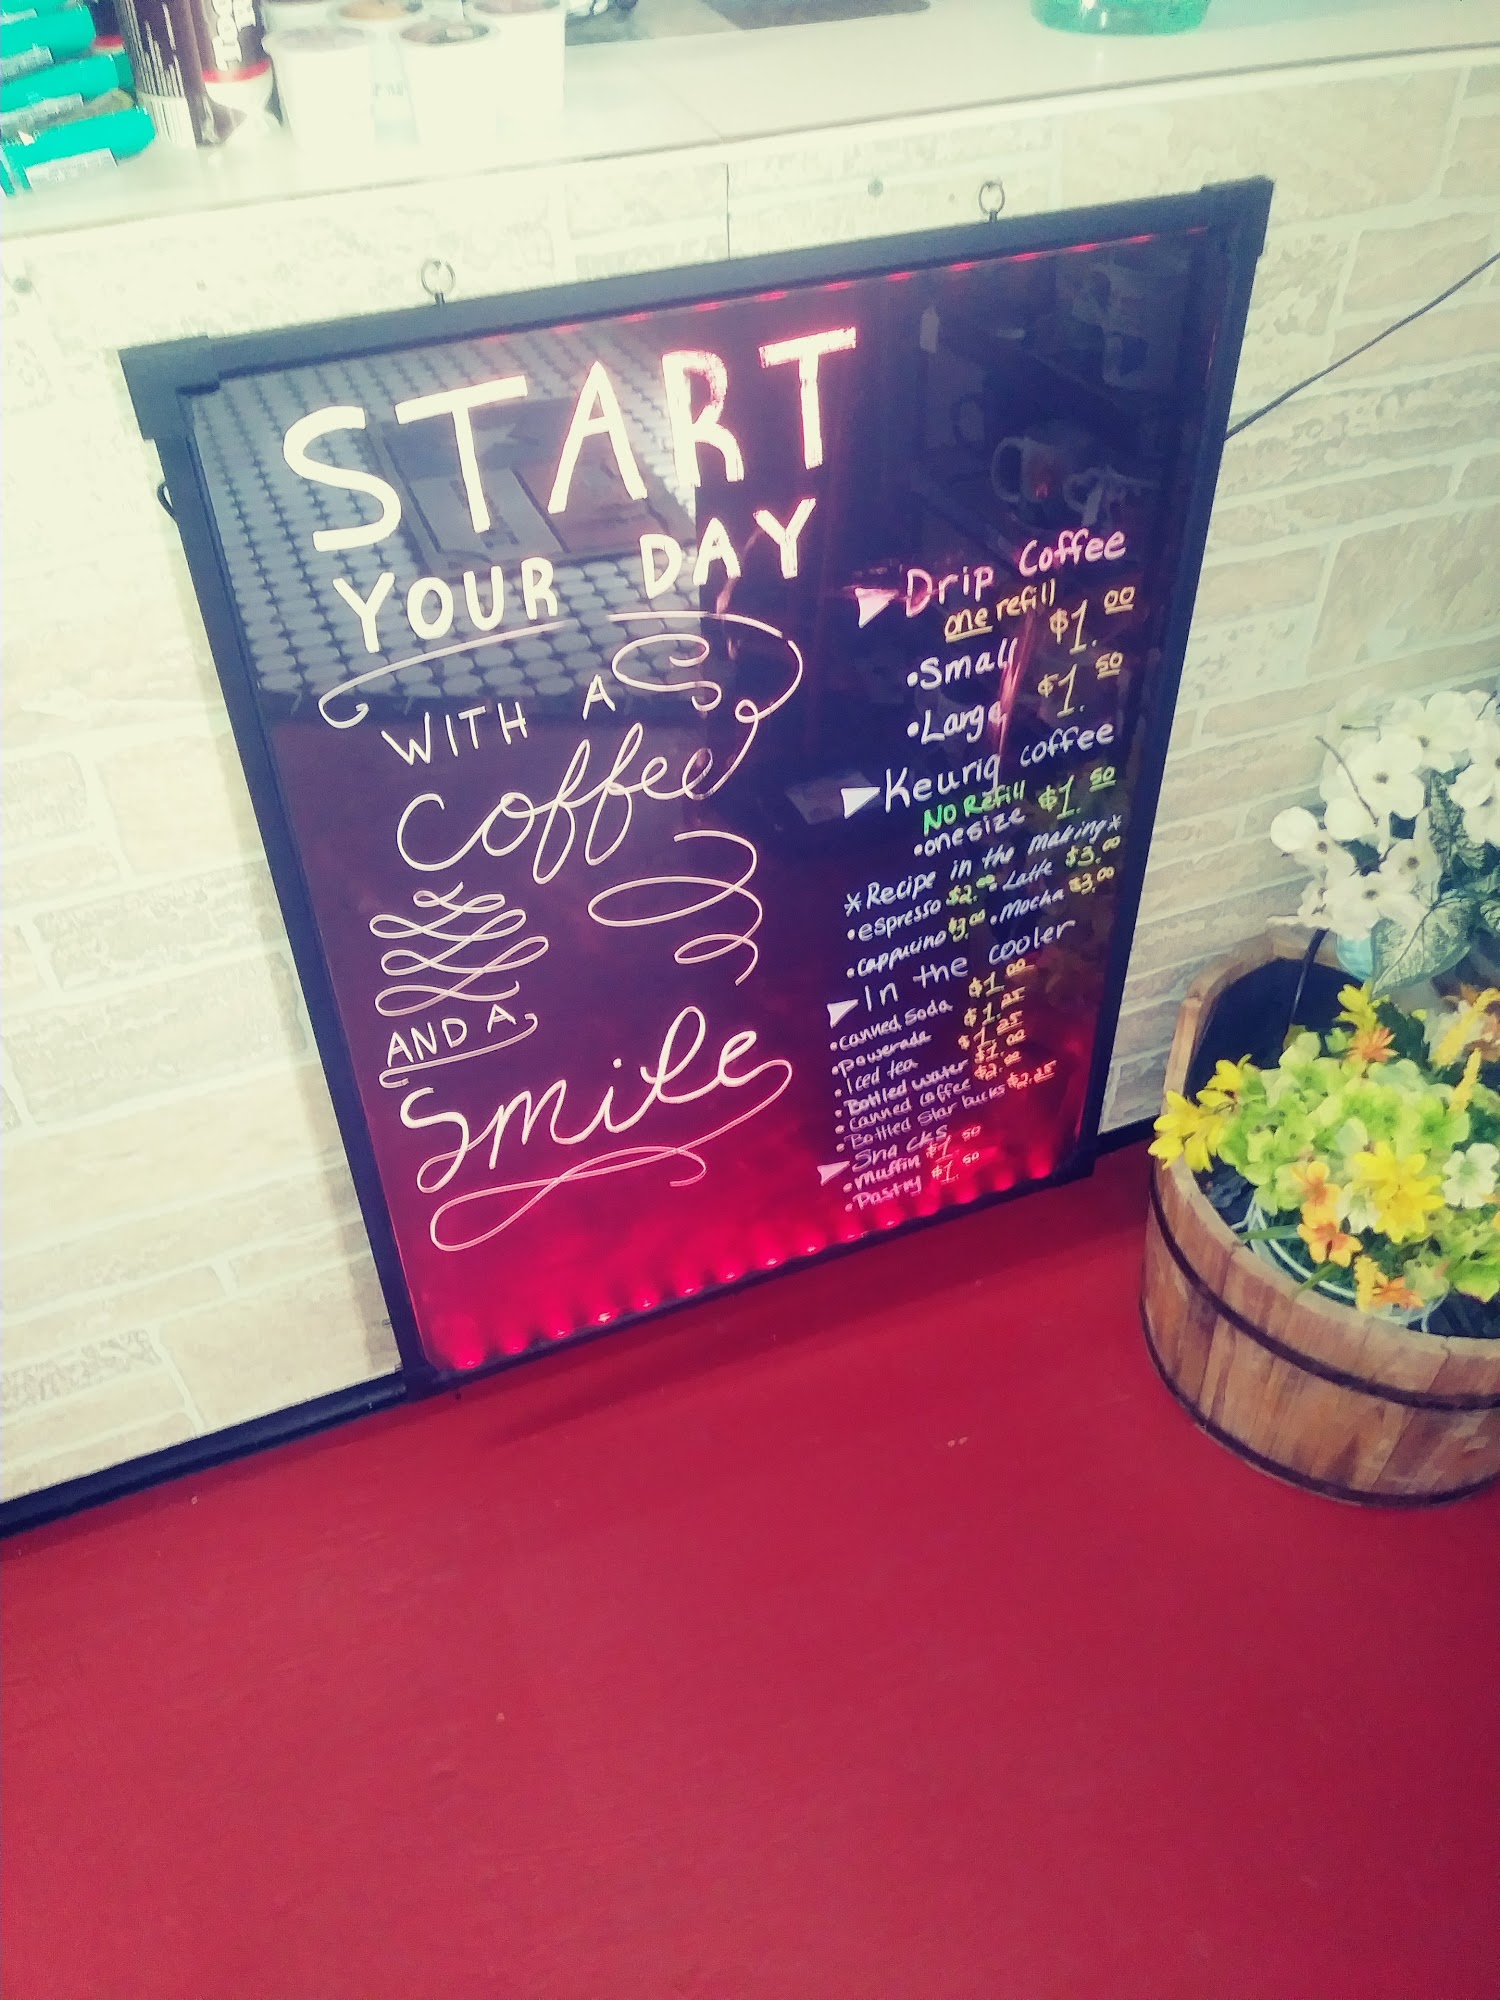 START
YOUR DAY
WITH A
Coffee
AND A
Smile
Drip Coffee
one refill
•Small $1.00
•Large $1.50
Keurig coffee
NO Refill
•onesize $1.50
*Recipe in the making*
•espresso $2.00 •Latte $3.00
•cappucino $3.00 •Mocha $3.00
In the cooler
•canned soda $1.00
•Powerade $1.25
•Iced tea $1.25
•Bottled water $1.00
•Canned coffee $2.00
•Bottled Starbucks $2.25
Snacks
•Muffin $1.50
•Pastry $1.50